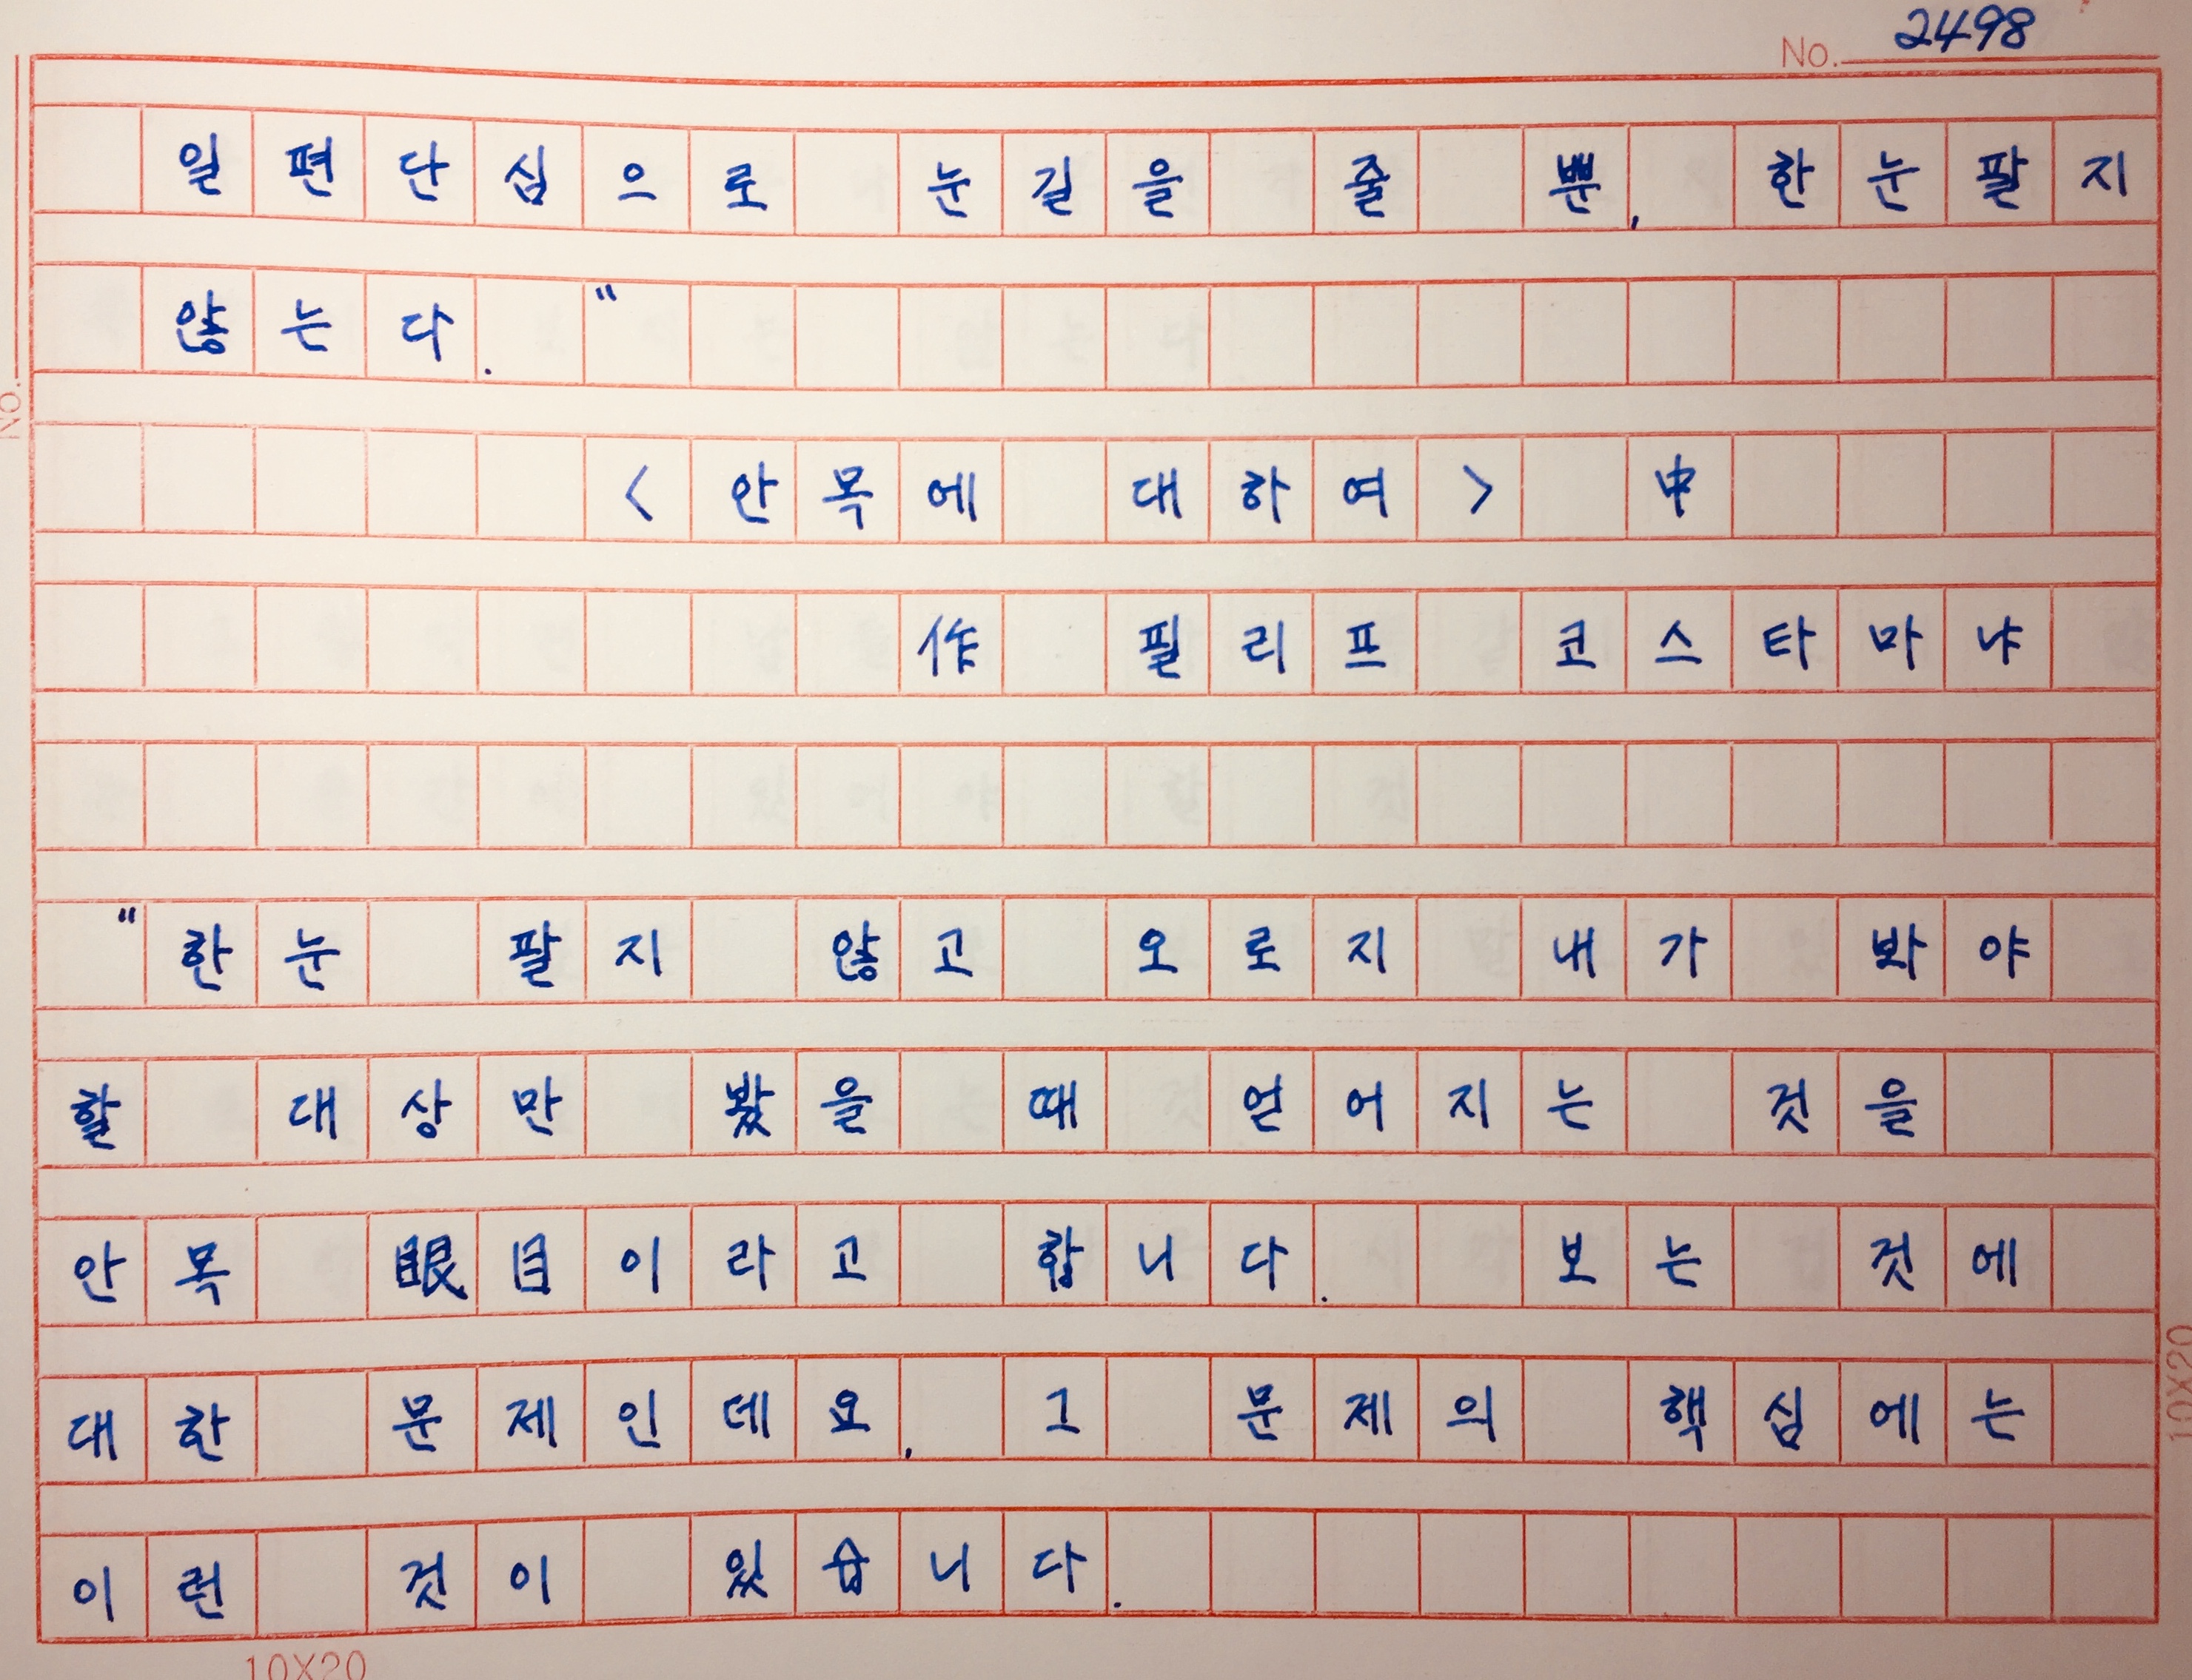 No. 2498
일편단심으로 눈길을 줄 뿐, 한눈팔지
않는다. "
<안목에 대하여> 中
作 필리프 코스타마냐
"한눈 팔지 않고 오로지 내가 봐야
할 대상만 봤을 때 얻어지는 것을
안목 眼目이라고 합니다. 보는 것에
대한 문제인데요, 그 문제의 핵심에는
이런 것이 있습니다.
10X20
No.
10X20